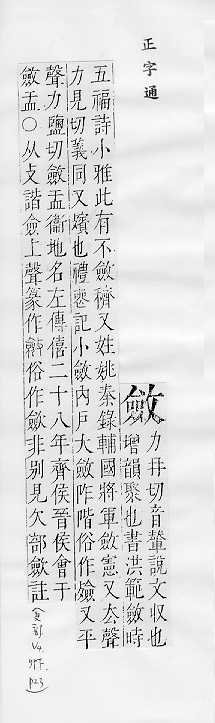 正字通
斂力冉切音輦說文収也
增韻聚也書洪範斂時
五福詩小雅此有不斂穧又姓姚秦錄輔國將軍斂憲又去聲
力見切義同又殯也禮喪記小斂內戶大斂阼階俗作殮又平
聲力鹽切斂盂衞地名左傳僖二十八年齊侯晉侯會于
斂盂○从攴諧僉上聲篆作斂俗作歛非別見欠部歛註